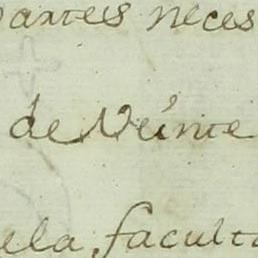 partes neces
de Veinte
ela, faculta